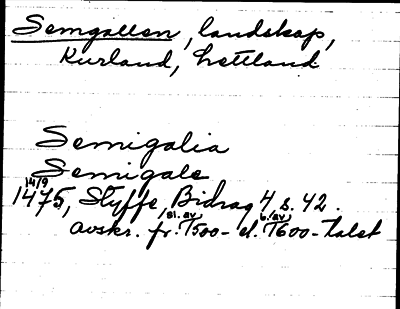 Semgallen, landskap,
Kurland, Lettland
Semigalia
Semigale
14/9
1475, Styffe, Bidrag 4 s. 42.
sl. av b. av
avskr. fr. 1500- el. 1600-talet